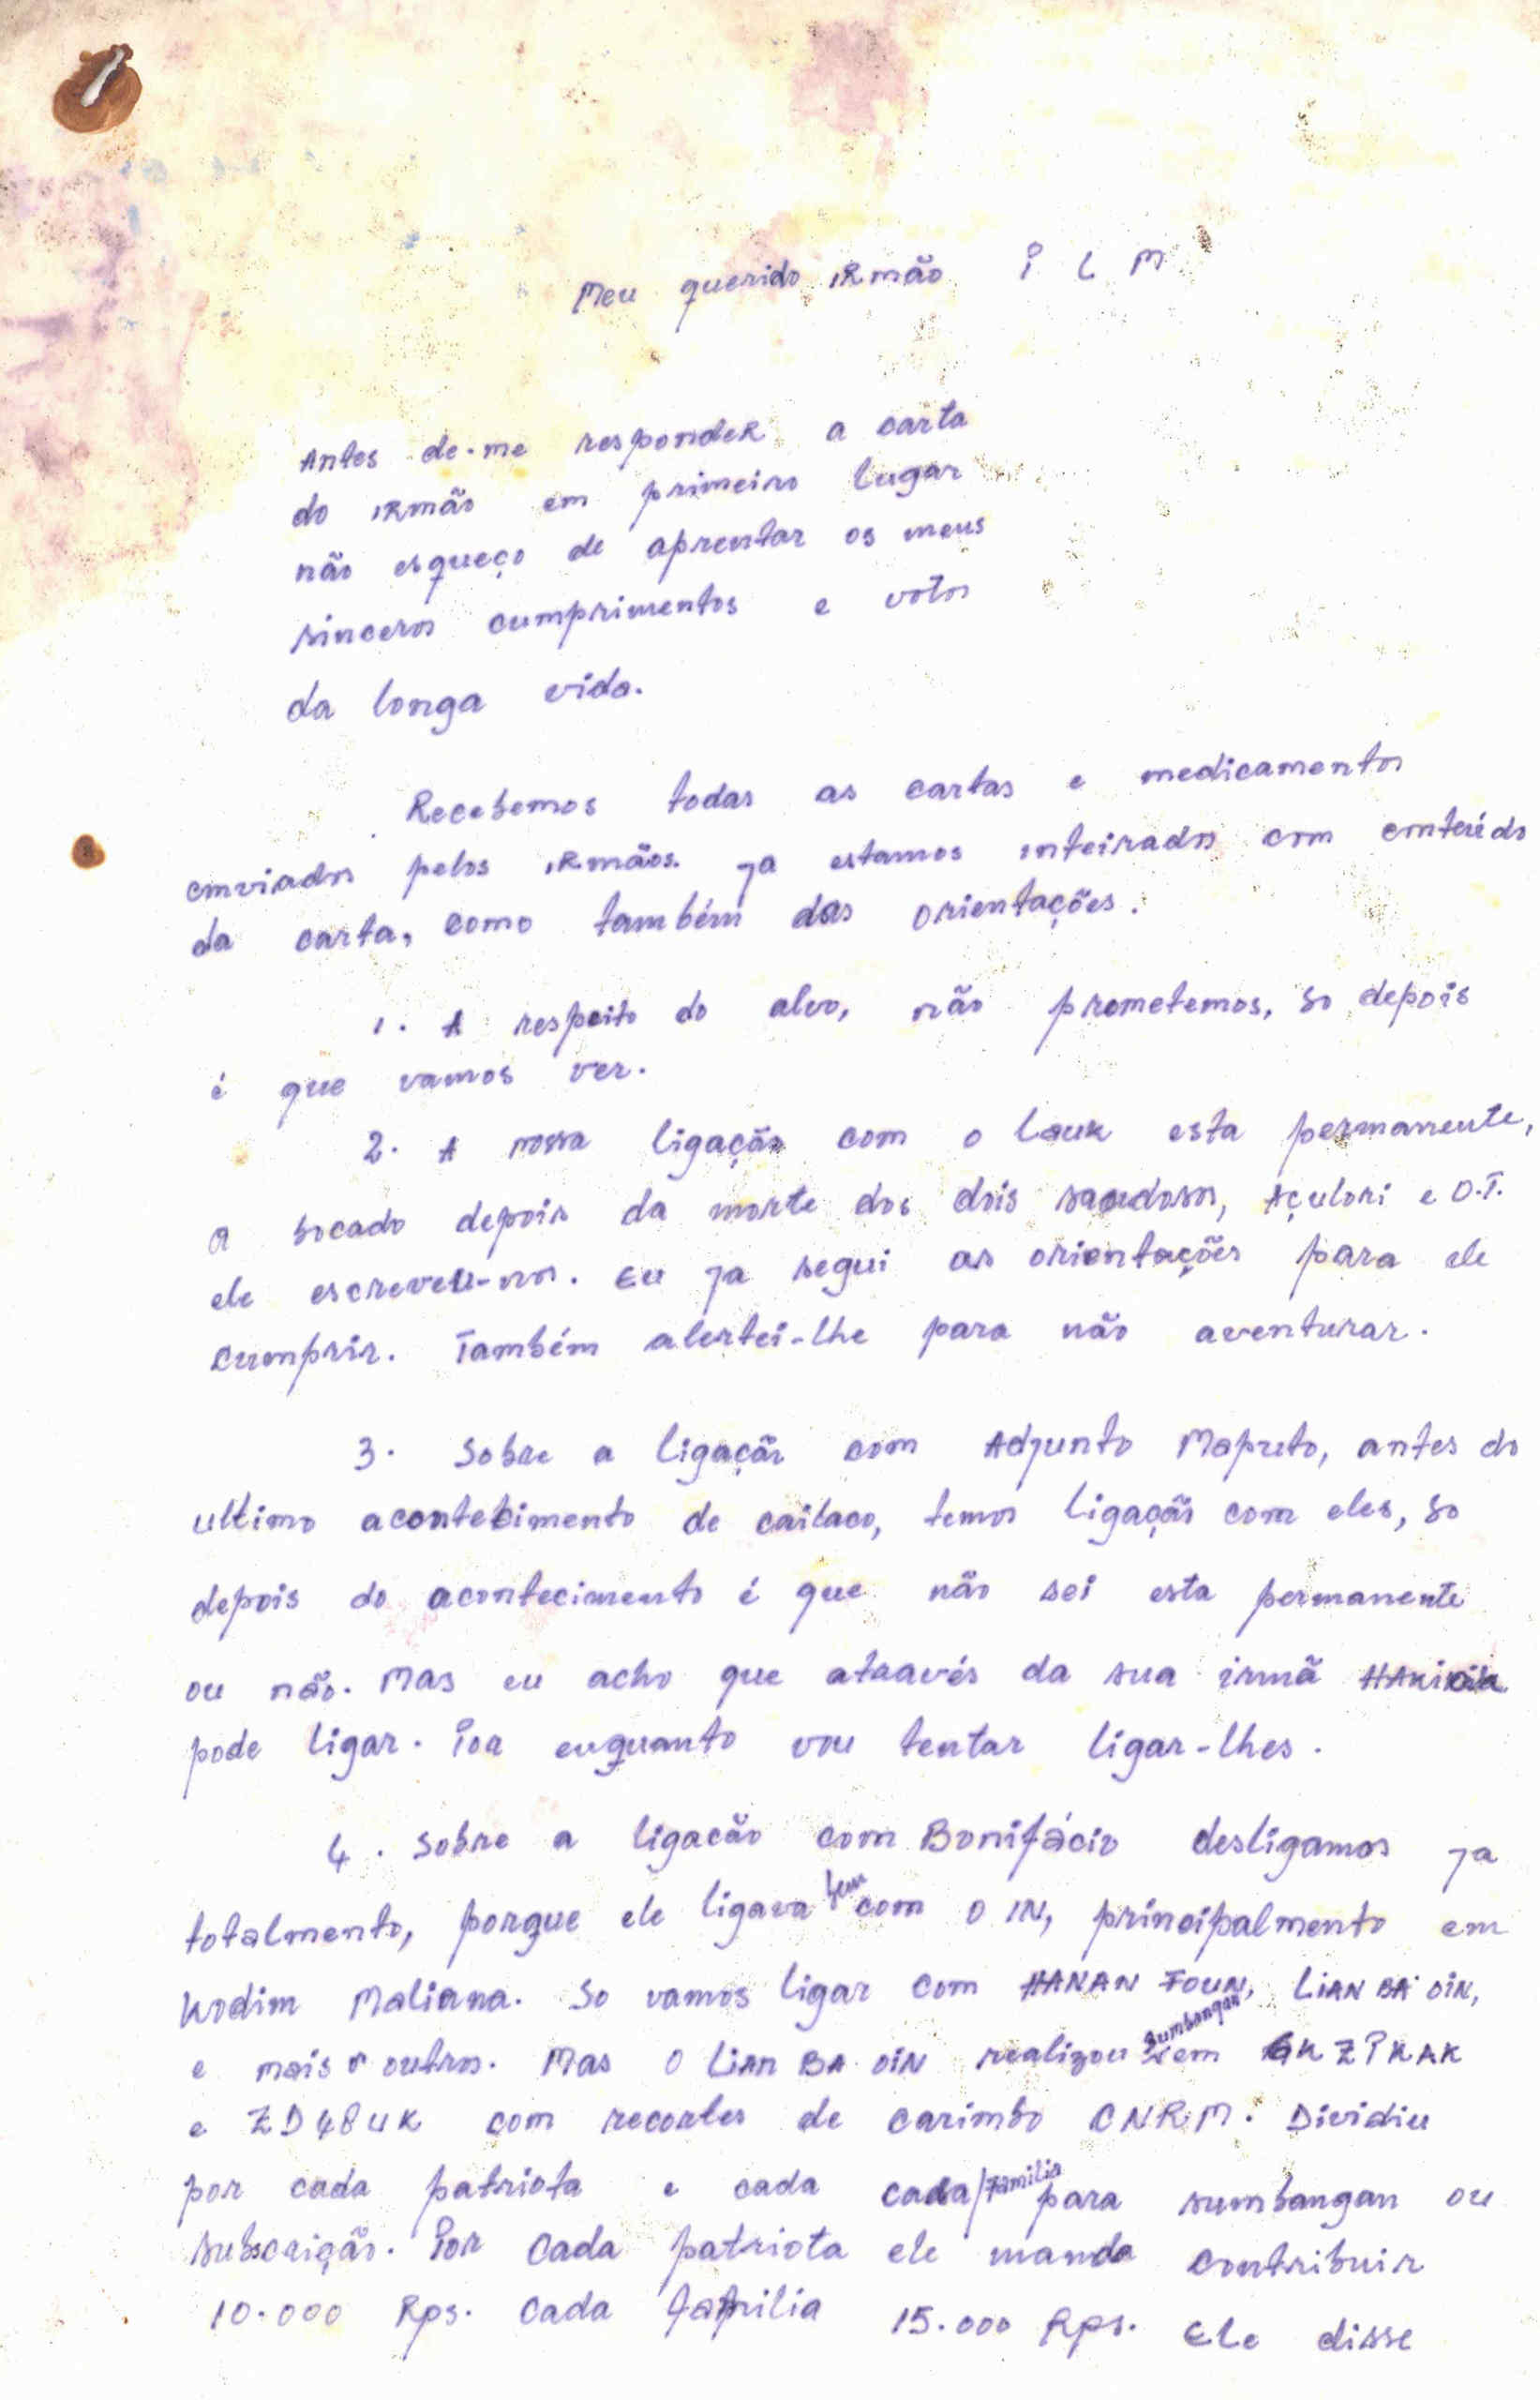 Meu querido IRmão I L M
Antes de-me responder a carta
do IRmão em primeiro lugar
não esqueço de aprentar os meus
sinceros cumprimentos e votos
da longa vida.
Recebemos todas as cartas e medicamentos
enviados pelos IRmãos. Ja estamos inteirados com conteúdo
da carta, como também das orientações.
1. A respeito do alvo, não prometemos, so depois
é que vamos ver.
2. A nossa ligação com o Lauk esta permanente,
a bocado depois da morte dos dois saudosos, Açulori e O.T.
ele escreveu-nos. Eu ja segui as orientações para ele
cumprir. Também alertei-lhe para não aventurar.
3. Sobre a ligação com Adjunto Maputo, antes do
ultimo acontecimento de cailaco, temos ligação com eles, so
depois do acontecimento é que não sei esta permanente
ou não. Mas eu acho que através da sua irmã
pode ligar. Por enquanto vou tentar ligar-lhes.
4. Sobre a ligacão com Bonifácio desligamos ja
totalmento, porque ele ligava bem com o IN, principalmento em
Kodim Maliana. So vamos ligar com HANAN FOUN, LIAN BA OIN,
e mais outros. Mas o LIAN BA OIN realizou Sumbangan em GK ZPKAK
e ZD48UK com recortes de carimbo CNRM. Dividiu
por cada patriota e cada cada/Familia para sumbangan ou
subscrição. Por cada patriota ele manda contribuir
10.000 Rps. cada família 15.000 Rps. Ele disse